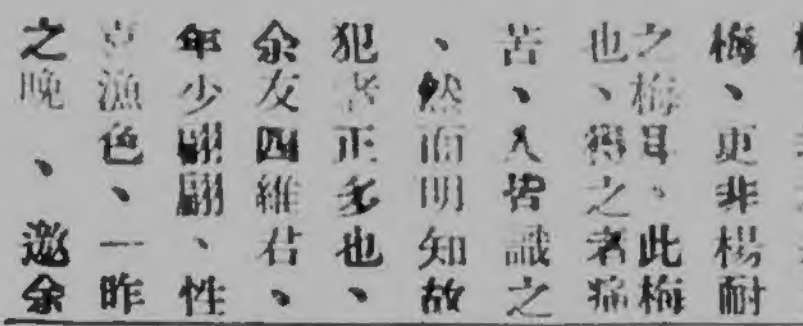 梅、更非楊耐
之梅耳、此梅
也、得之者痛
苦、人皆識之
、然而明知故
犯者正多也、
余友四維君、
年少翩翩、性
喜漁色、一昨
之晚、邀余